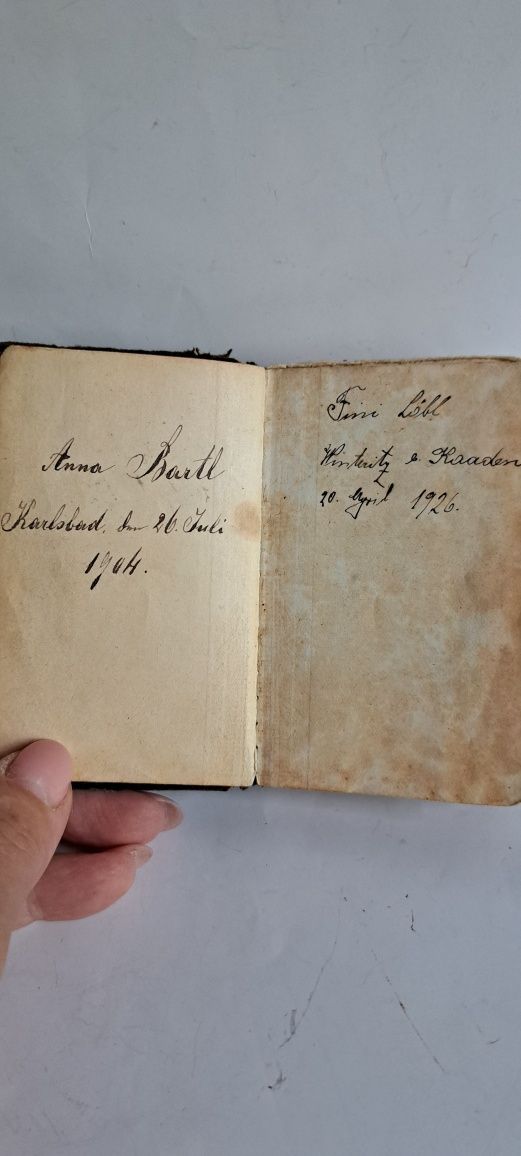 Anna Bartl
Karlsbad, den 26. Juli
1904.
Fini Löbl
Winteritz b Kaaden
20. April 1926.